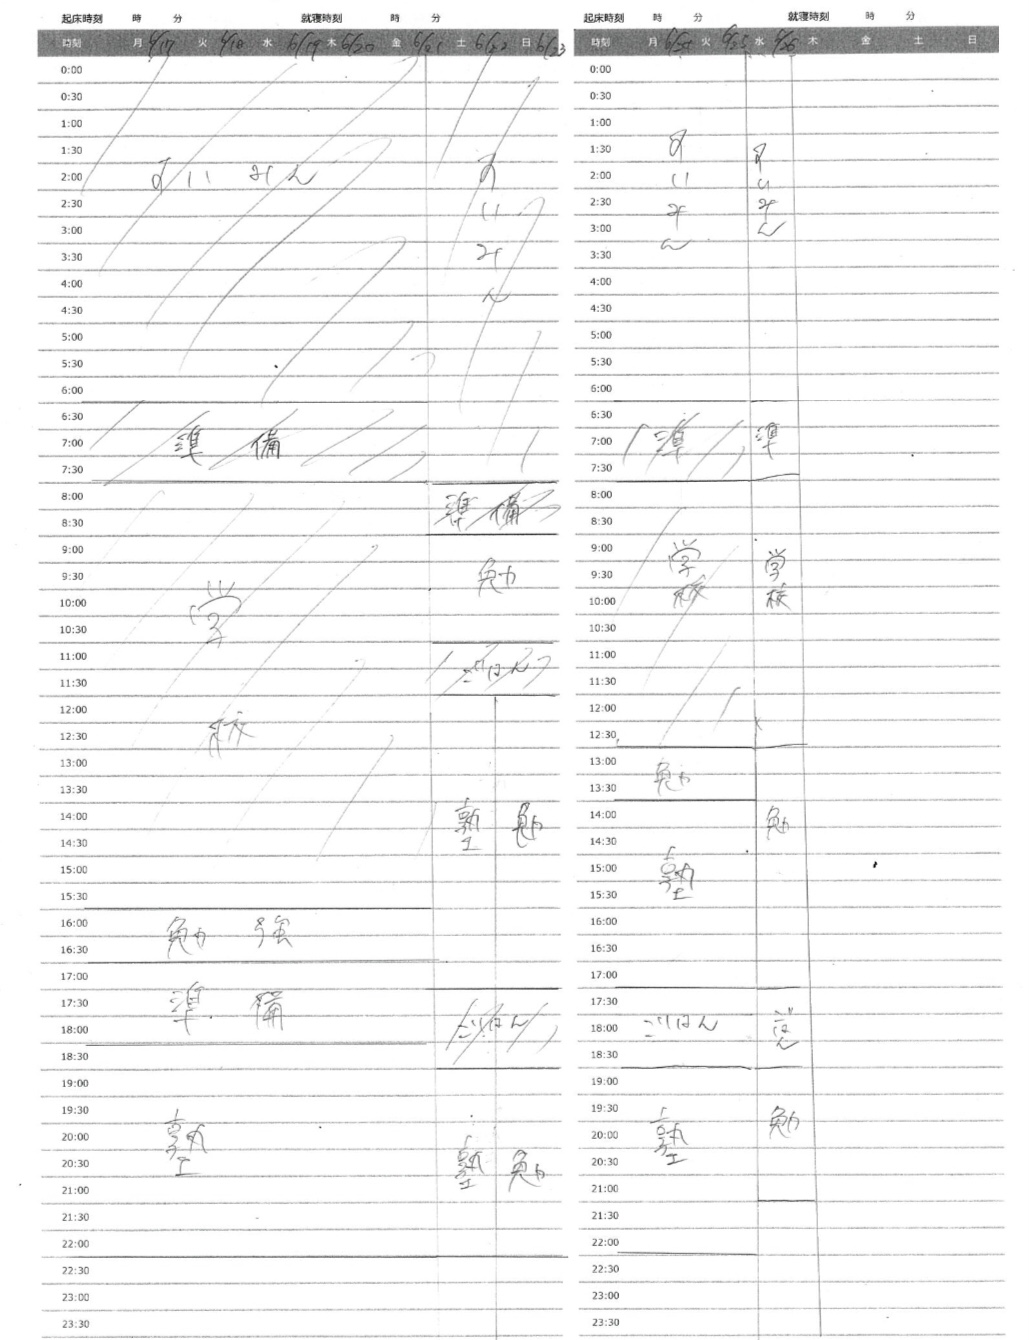 起床時刻 時 分 就寝時刻 時 分
時刻 月 6/17 火 6/18 水 6/19 木 6/20 金 6/21 土 6/22 日 6/23
0:00
0:30
1:00
1:30
2:00 すいみん すいみん
2:30
3:00
3:30
4:00
4:30
5:00
5:30
6:00
6:30
7:00 準備
7:30
8:00
8:30 準備
9:00
9:30 勉
10:00 学校
10:30
11:00
11:30 ごはん
12:00
12:30
13:00
13:30
14:00 塾 勉
14:30
15:00
15:30
16:00 勉強
16:30
17:00
17:30 準備
18:00 ごはん
18:30
19:00
19:30
20:00 塾
20:30 塾 勉
21:00
21:30
22:00
22:30
23:00
23:30
起床時刻 時 分 就寝時刻 時 分
時刻 月 6/24 火 6/25 水 6/26 木 金 土 日
0:00
0:30
1:00
1:30 すいみん すいみん
2:00
2:30
3:00
3:30
4:00
4:30
5:00
5:30
6:00
6:30
7:00 準 準
7:30
8:00
8:30
9:00 学校 学校
9:30
10:00
10:30
11:00
11:30
12:00
12:30
13:00 勉
13:30
14:00 勉
14:30
15:00 塾
15:30
16:00
16:30
17:00
17:30
18:00 ごはん ごはん
18:30
19:00
19:30 勉
20:00 塾
20:30
21:00
21:30
22:00
22:30
23:00
23:30